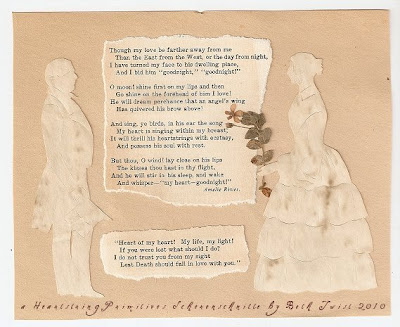 Though my love be farther away from me
Than the East from the West, or the day from night,
I have turned my face to his dwelling place,
And I bid him "goodnight," "goodnight!"
O moon! shine first on my lips and then
Go shine on the forehead of him I love!
He will dream perchance that an angel's wing
Has quivered his brow above!
And sing, ye birds, in his ear the song
My heart is singing within my breast;
It will thrill his heartstrings with ecstasy,
And possess his soul with rest.
But thou, O wind! lay close on his lips
The kisses thou hast in thy flight,
And he will stir in his sleep, and wake
And whisper—"my heart—goodnight!"
Amelie Rives.
"Heart of my heart! My life, my light!
If you were lost what should I do?
I do not trust you from my sight
Lest Death should fall in love with you."
a Heartstring Primitives Scherenschnitte by Beth Twist 2010